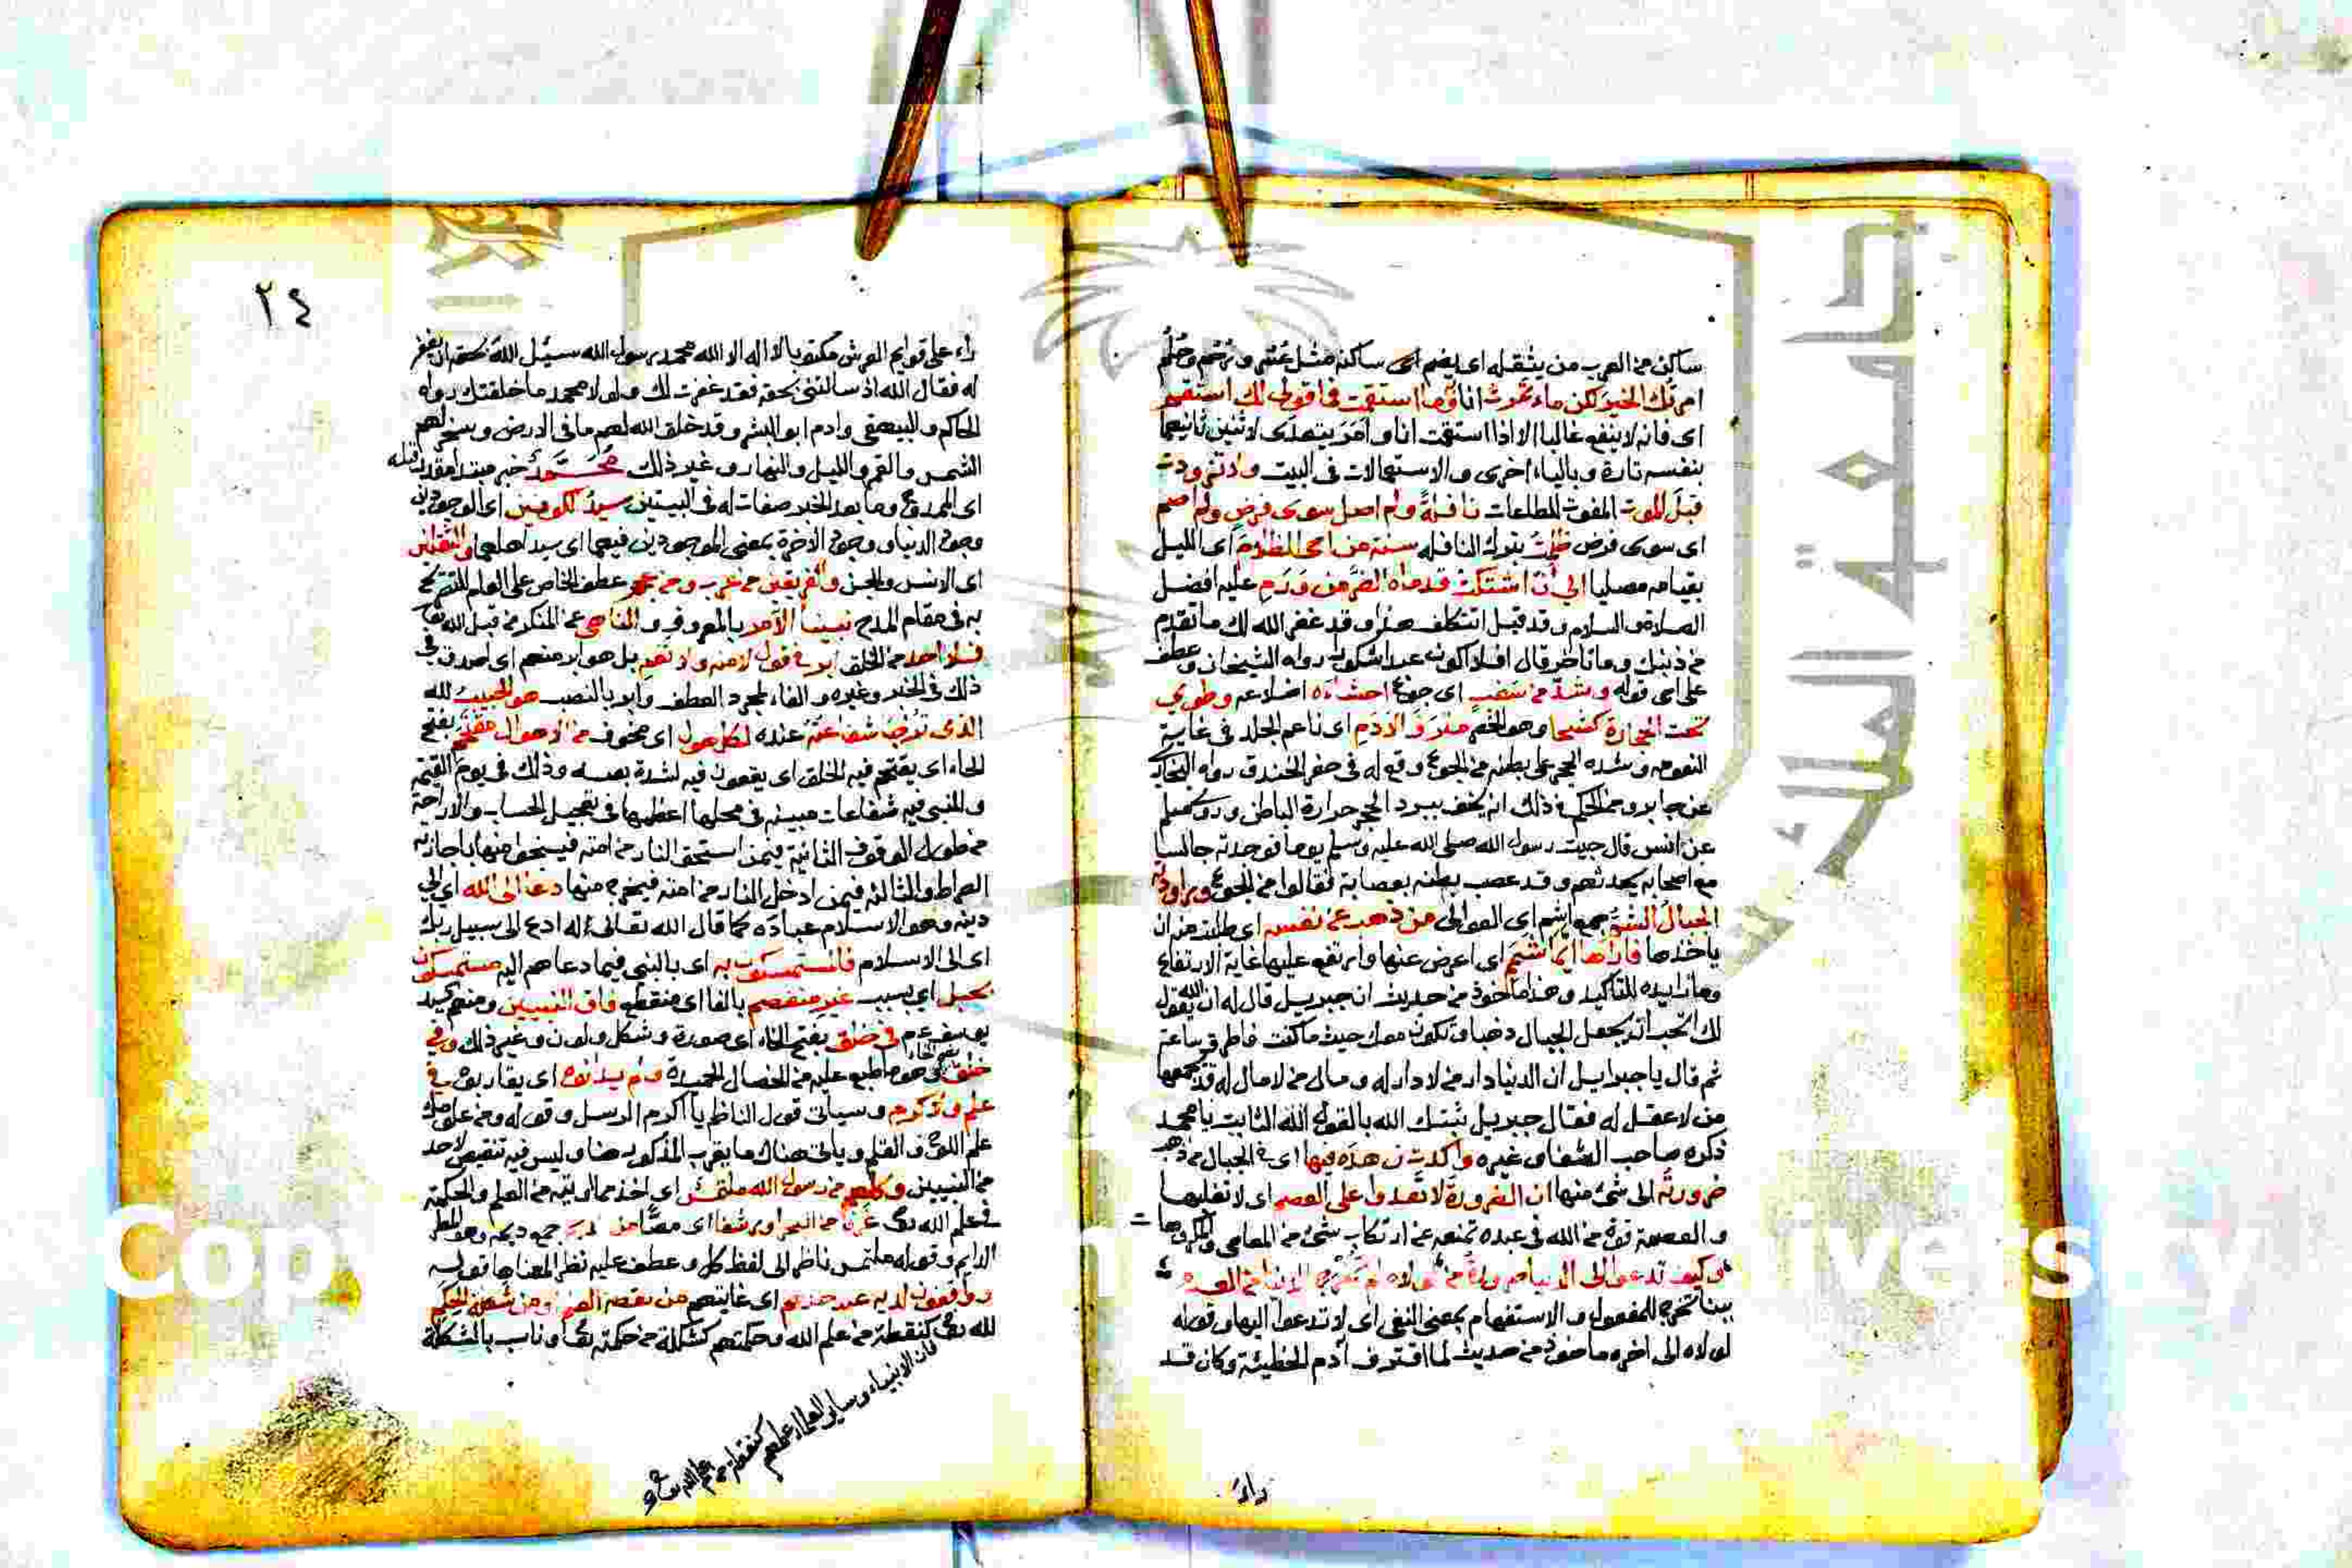 ساكن من العرب من يثقله اي يضم اي ساكنه مثل عُسُر ورُحُم وحُلُم
امرتك الخير لكن ما ائتمرت انا وما استقمت فما قولي لك استقم
اي فانه لا ينفع غالبا الا اذا استقمت انا وامر يتعدى لاثنين ثانيهما
بنفسه تارة وبالباء اخرى والاستعمالات في البيت ولا تزودت
قبل الموت المفوت للطاعات نافلةً ولم اصل سوى فرض ولم اصم
اي سوى فرض ظلمت بترك النافله سنة من احيي الظلام اي الليل
بقيامه مصليا الى أن اشتكت قدماه الضر من ورم عليه افضل
الصلاة والسلام وقد قيل اتتكلف هذا وقد غفر الله لك ما تقدم
من ذنبك وما تاخر قال افلا اكون عبدا شكورا رواه الشيخان وعطف
على احيى قوله وشدّ من سغب اي جوع احشاءه اضلاعه وطوى
تحت الحجارة كشحا وهو الخصر مترف الادم اي ناعم الجلد في غاية
النعومه وشده الحجر على بطنه من الجوع وقع له في حفر الخندق رواه البخاري
عن جابر ومن الحكم في ذلك انه يخف ببرد الحجر حرارة الباطن وروى مسلم
عن انس قال جيت رسول الله صلى الله عليه وسلم يوما فوجدته جالسا
مع اصحابه يحدثهم وقد عصب بطنه بعصابة فقالوا من الجوع وراودته
الجبال الشم جمع اشم اي العوالي من ذهب عن نفسه اي طلبت منه ان
ياخذها فاراها ايما شمم اي اعرض عنها وارتفع عليها غاية الارتفاع
وما زايده للتاكيد وهذا ماخوذ من حديث ان جبريل قال له ان الله يقول
لك اتحب ان يجعل الجبال ذهبا وتكون معك حيث ما كنت فاطرق ساعة
ثم قال يا جبرايل ان الدنيا دار من لا دار له ومال من لا مال له قد يجمعها
من لا عقل له فقال جبريل ثبتك الله بالقول الثابت يا محمد
ذكره صاحب الشفا وغيره واكدت زهده فيها اي في الجبال من ذهب
ضرورته الى شئ منها ان الضرورة لا تعدوا على العصم اي لا تغلبها
والعصمة قوة من الله في عبده تمنعه عن ارتكاب شئ من المعاصي والمكروهات
وكيف تدعو الى الدنيا ضرورة من لولاه لم تخرج الدنيا من العدم
ببنا تخرج للمفعول والاستفهام بمعنى النفي اي لا تدعوا اليها وقوله
لولاه الى اخره ماخوذ من حديث لما اقترف آدم الخطيئة وكان قد
راء
٢٤
راء على قوايم العرش مكتوبا لا اله الا الله محمد رسول الله سئل الله بحقه ان يغفر
له فقال الله اذ سالتني بحقه فقد غفرت لك ولولا محمد ما خلقتك رواه
الحاكم والبيهقي وادم ابو البشر وقد خلق الله لهم ما في الارض وسخر لهم
الشمس والقمر والليل والنهار وغير ذلك محمدٌ خبر مبتدا مقدر قبله
اي الممدوح وما بعد الخبر صفات له في البيتين سيد الكونين اي الوجودين
وجود الدنيا ووجود الاخرة بمعنى الموجودين فيهما اي سيد اهلهما والثقلين
اي الانس والجن والفريقين من عرب ومن عجم عطف الخاص على العام للتصريح
به في مقام المدح نبينا الآمر بالمعروف والناهي عن المنكر من قبل الله تعالى
فلا احد من الخلق ابر في قول لا منه ولا نعم بل هو ابر منهم اي اصدق في
ذلك في الخبر وغيره والفاء لمجرد العطف وابر بالنصب هو الحبيب لله
الذي تُرجى شفاعته عنده لكل هول اي مخوف من الاهوال مقتحم بفتح
الحاء اي يقتحم فيه الخلق اي يقعون فيه لشدة بعسه وذلك في يوم القيمة
وللنبي فيه شفاعات مبينه في محلها اعظمها في تعجيل الحساب والاراحة
من طول الوقوف الثانية فيمن استحق النار من امته فينجوا منها باجازته
الصراط والثالثه فيمن ادخل النار من امته فيخرج منها دعا الى الله اي الى
دينه وهو الاسلام عباده كما قال الله تعالى له ادع الى سبيل ربك
اي الى الاسلام فالمستمسكون به اي بالنبي فيما دعاهم اليه مستمسكون
بحبل اي بسبب غير منفصم بالفا اي منقطع فاق النبيين ومنهم سيد
يوسف عم في خلق بفتح الخاء اي صورة وشكل ولون وغير ذلك وفي
خلق بضم الخاء اي هو ما طبع عليه من الخصال الحميدة ولم يدانوه اي يقاربوه في
علم ولا كرم وسياتي قول الناظم يا اكرم الرسل وقوله ومن علومك
علم اللوح والقلم وياتي هناك ما يقرب المذكور هنا وليس فيه تنقيص لاحد
من النبيين وكلهم من رسول الله ملتمس اي اخذ مما اوتيه من العلم والحكمة
في علم الله تعالى غرفا من البحر او رشفا اي مصًّا من الديم جمع ديمة وهو المطر
الدايم وقوله ملتمس ناظر الى لفظ كل وعطف عليه نظر المعناها قوله
وواقفون لديه عند حدهم اي غايتهم من نقطة العلم او من شكلة الحكم
لله تعالى كنقطة من علم الله وحكمتهم كشكلة من حكمته تعالى وناسب بالشكلة
فان الانبياء وساير العلماء علمهم كنقطة من علم الله تعالى